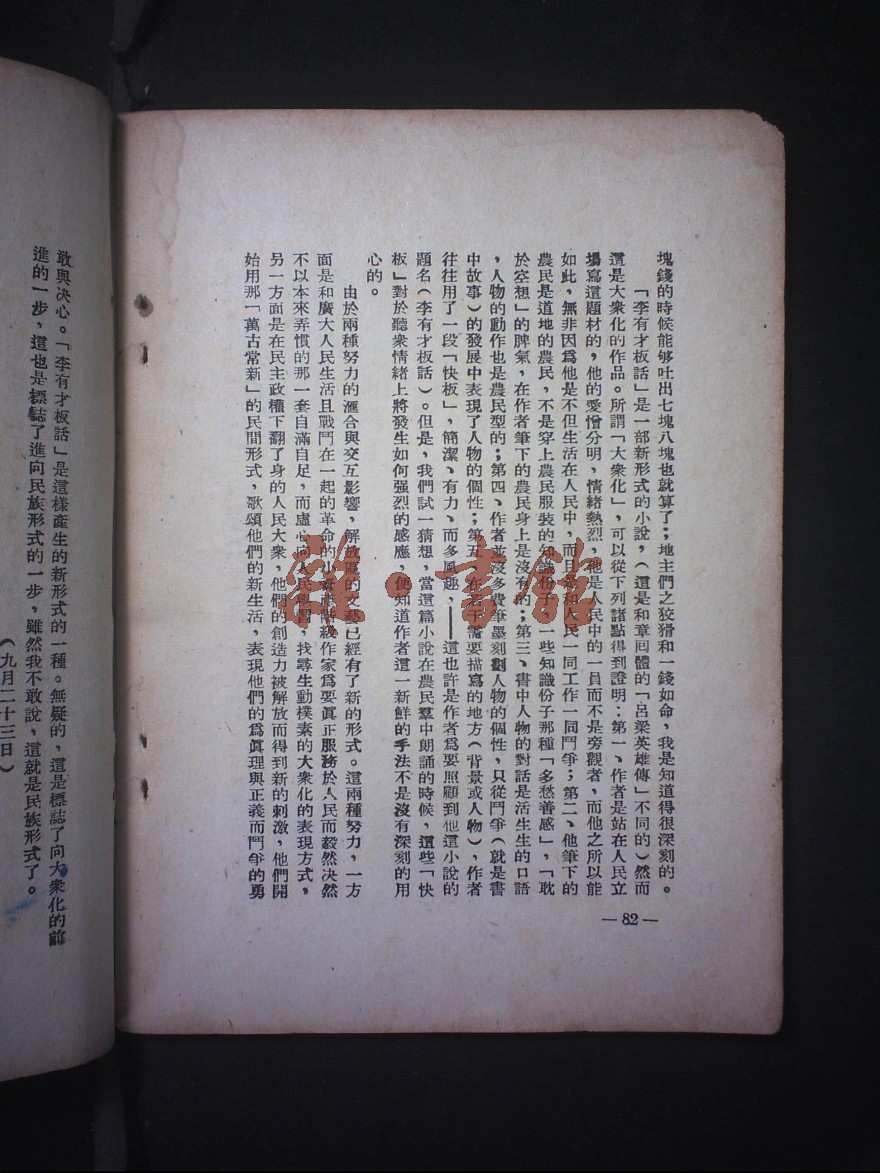 塊錢的時候能够吐出七塊八塊也就算了；地主們之狡猾和一錢如命，我是知道得很深刻的。
「李有才板話」是一部新形式的小說，（這是和章回體的「呂梁英雄傳」不同的）然而
這是大衆化的作品。所謂「大衆化」，可以從下列諸點得到證明：第一、作者是站在人民立
場寫這題材的，他的愛憎分明，情緒熱烈，他是人民中的一員而不是旁觀者，而他之所以能
如此，無非因爲他是不但生活在人民中，而且是和人民一同工作一同鬥爭；第二、他筆下的
農民是道地的農民，不是穿上農民服裝的知識份子，一些知識份子那種「多愁善感」，「耽
於空想」的脾氣，在作者筆下的農民身上是沒有的；第三、書中人物的對話是活生生的口語
，人物的動作也是農民型的；第四、作者並沒多費筆墨刻劃人物的個性，只從鬥爭（就是書
中故事）的發展中表現了人物的個性；第五、在若干需要描寫的地方（背景或人物），作者
往往用了一段「快板」，簡潔、有力、而多風趣，——這也許是作者爲要照顧到他這小說的
題名（李有才板話）。但是，我們試一猜想，當這篇小說在農民羣中朗誦的時候，這些「快
板」對於聽衆情緒上將發生如何强烈的感應，便知道作者這一新鮮的手法不是沒有深刻的用
心的。
由於兩種努力的滙合與交互影響，解放區的文藝已經有了新的形式。這兩種努力，一方
面是和廣大人民生活且戰鬥在一起的革命的小資產階級作家爲要眞正服務於人民而毅然決然
不以本來弄慣的那一套自滿自足，而虛心向人民學習，找尋生動樸素的大衆化的表現方式，
另一方面是在民主政權下翻了身的人民大衆，他們的創造力被解放而得到新的刺激，他們開
始用那「萬古常新」的民間形式，歌頌他們的新生活，表現他們的爲眞理與正義而鬥爭的勇
—82—
敢與决心。「李有才板話」是這樣產生的新形式的一種。無疑的，這是標誌了向大衆化的前
進的一步，這也是標誌了進向民族形式的一步，雖然我不敢說，這就是民族形式了。
（九月二十三日）
雜·書館